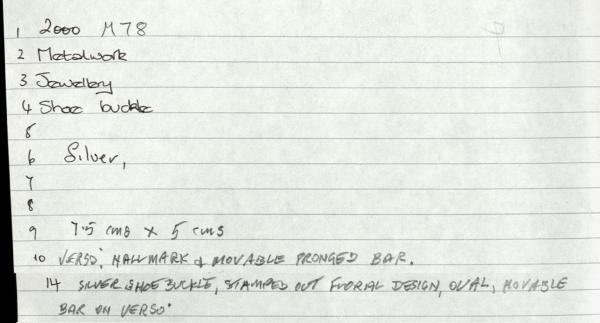 1 2000 M78
2 Metalwork
3 Jewellery
4 Shoe buckle
5
6 Silver,
7
8
9 7.5 cms x 5 cms
10 VERSO: HALLMARK & MOVABLE PRONGED BAR.
14 SILVER SHOE BUCKLE, STAMPED OUT FLORIAL DESIGN, OVAL, MOVABLE
BAR ON VERSO.